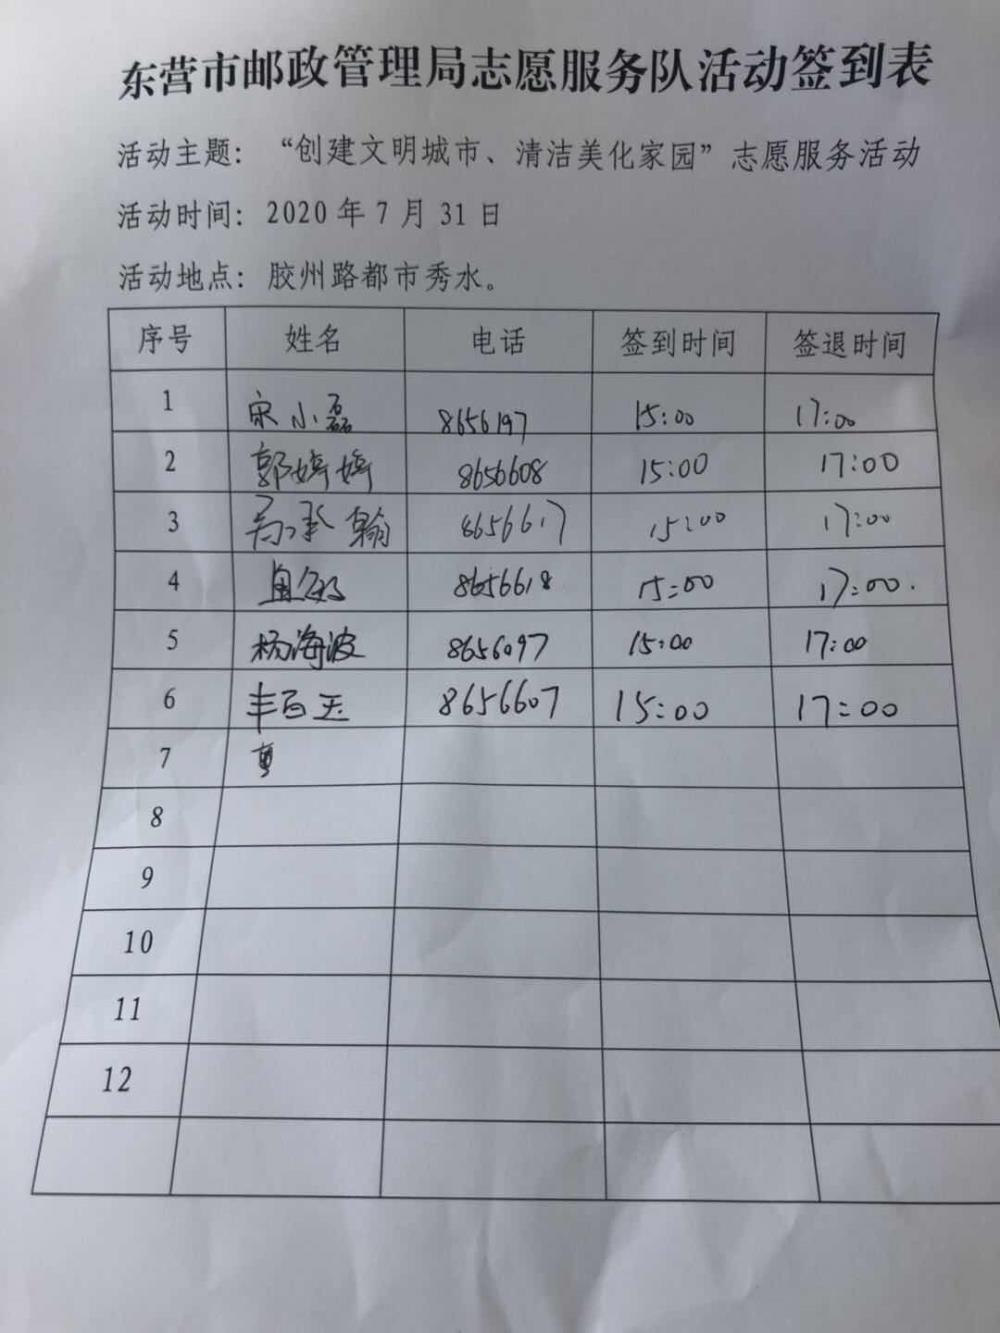 东营市邮政管理局志愿服务队活动签到表
活动主题：“创建文明城市、清洁美化家园”志愿服务活动
活动时间：2020年7月31日
活动地点：胶州路都市秀水。
序号 姓名 电话 签到时间 签退时间
1 宋小磊 8656197 15:00 17:00
2 郭婷婷 8656608 15:00 17:00
3 承翰 8656617 15:00 17:00
4 8656618 15:00 17:00.
5 杨海波 8656097 15:00 17:00
6 丰百玉 8656607 15:00 17:00
7
8
9
10
11
12